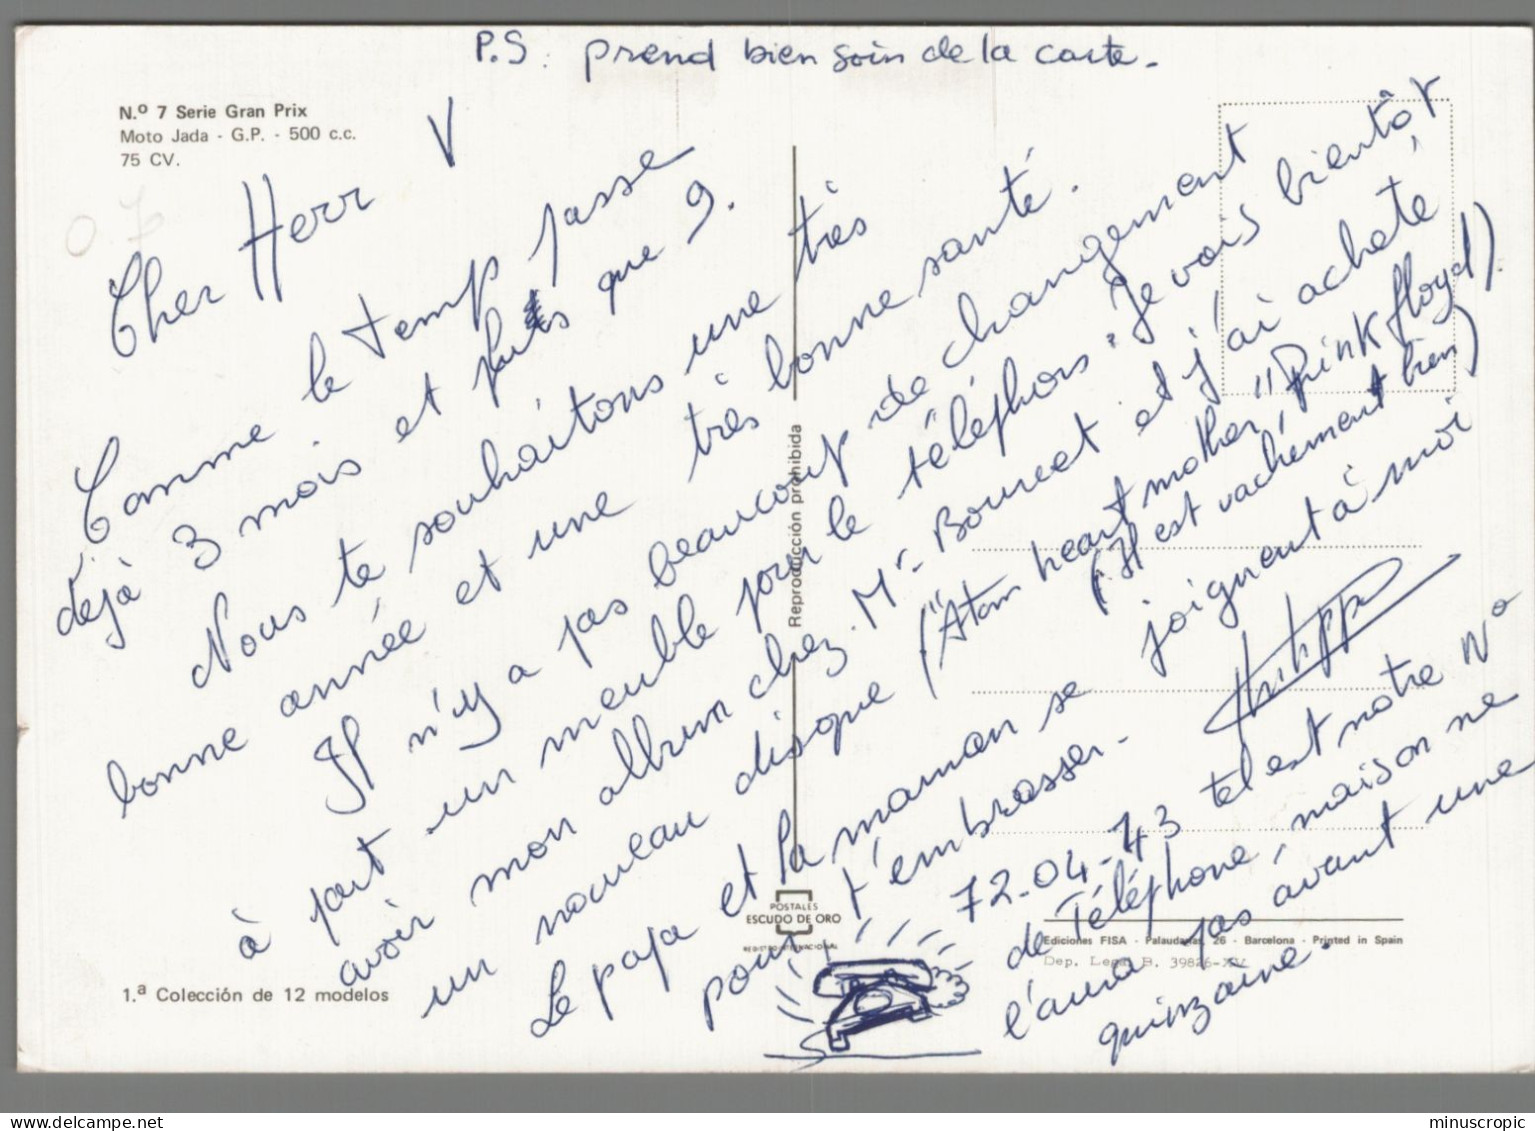 P.S : prend bien soin de la carte.
N.º 7 Serie Gran Prix
Moto Jada - G.P. - 500 c.c.
75 CV.
Cher Herr V
Comme le temp passe
déjà 3 mois et plus que 9.
Nous te souhaitons une très
bonne année et une très bonne santé.
Il n'y a pas beaucoup de changement
à part un meuble pour le téléphons. Je vais bientôt
avoir mon album chez Mr Bourcet et j'ai acheté
un nouveau disque ("Atom heart mother" Pink floyd)
(Il est vachement bien)
Le papa et la maman se joignent à moi
pour t'embrasser.
Philippe
72-04-43 tel est notre Nº
de Téléphone, maison ne
l'aura pas avant une
quinzaine.
Reproducción prohibida
POSTALES
ESCUDO DE ORO
REGISTRO INTERNACIONAL
Ediciones FISA - Palaudarias, 26 - Barcelona - Printed in Spain
Dep. Legal B. 39826-XV
1.ª Colección de 12 modelos
minuscropic